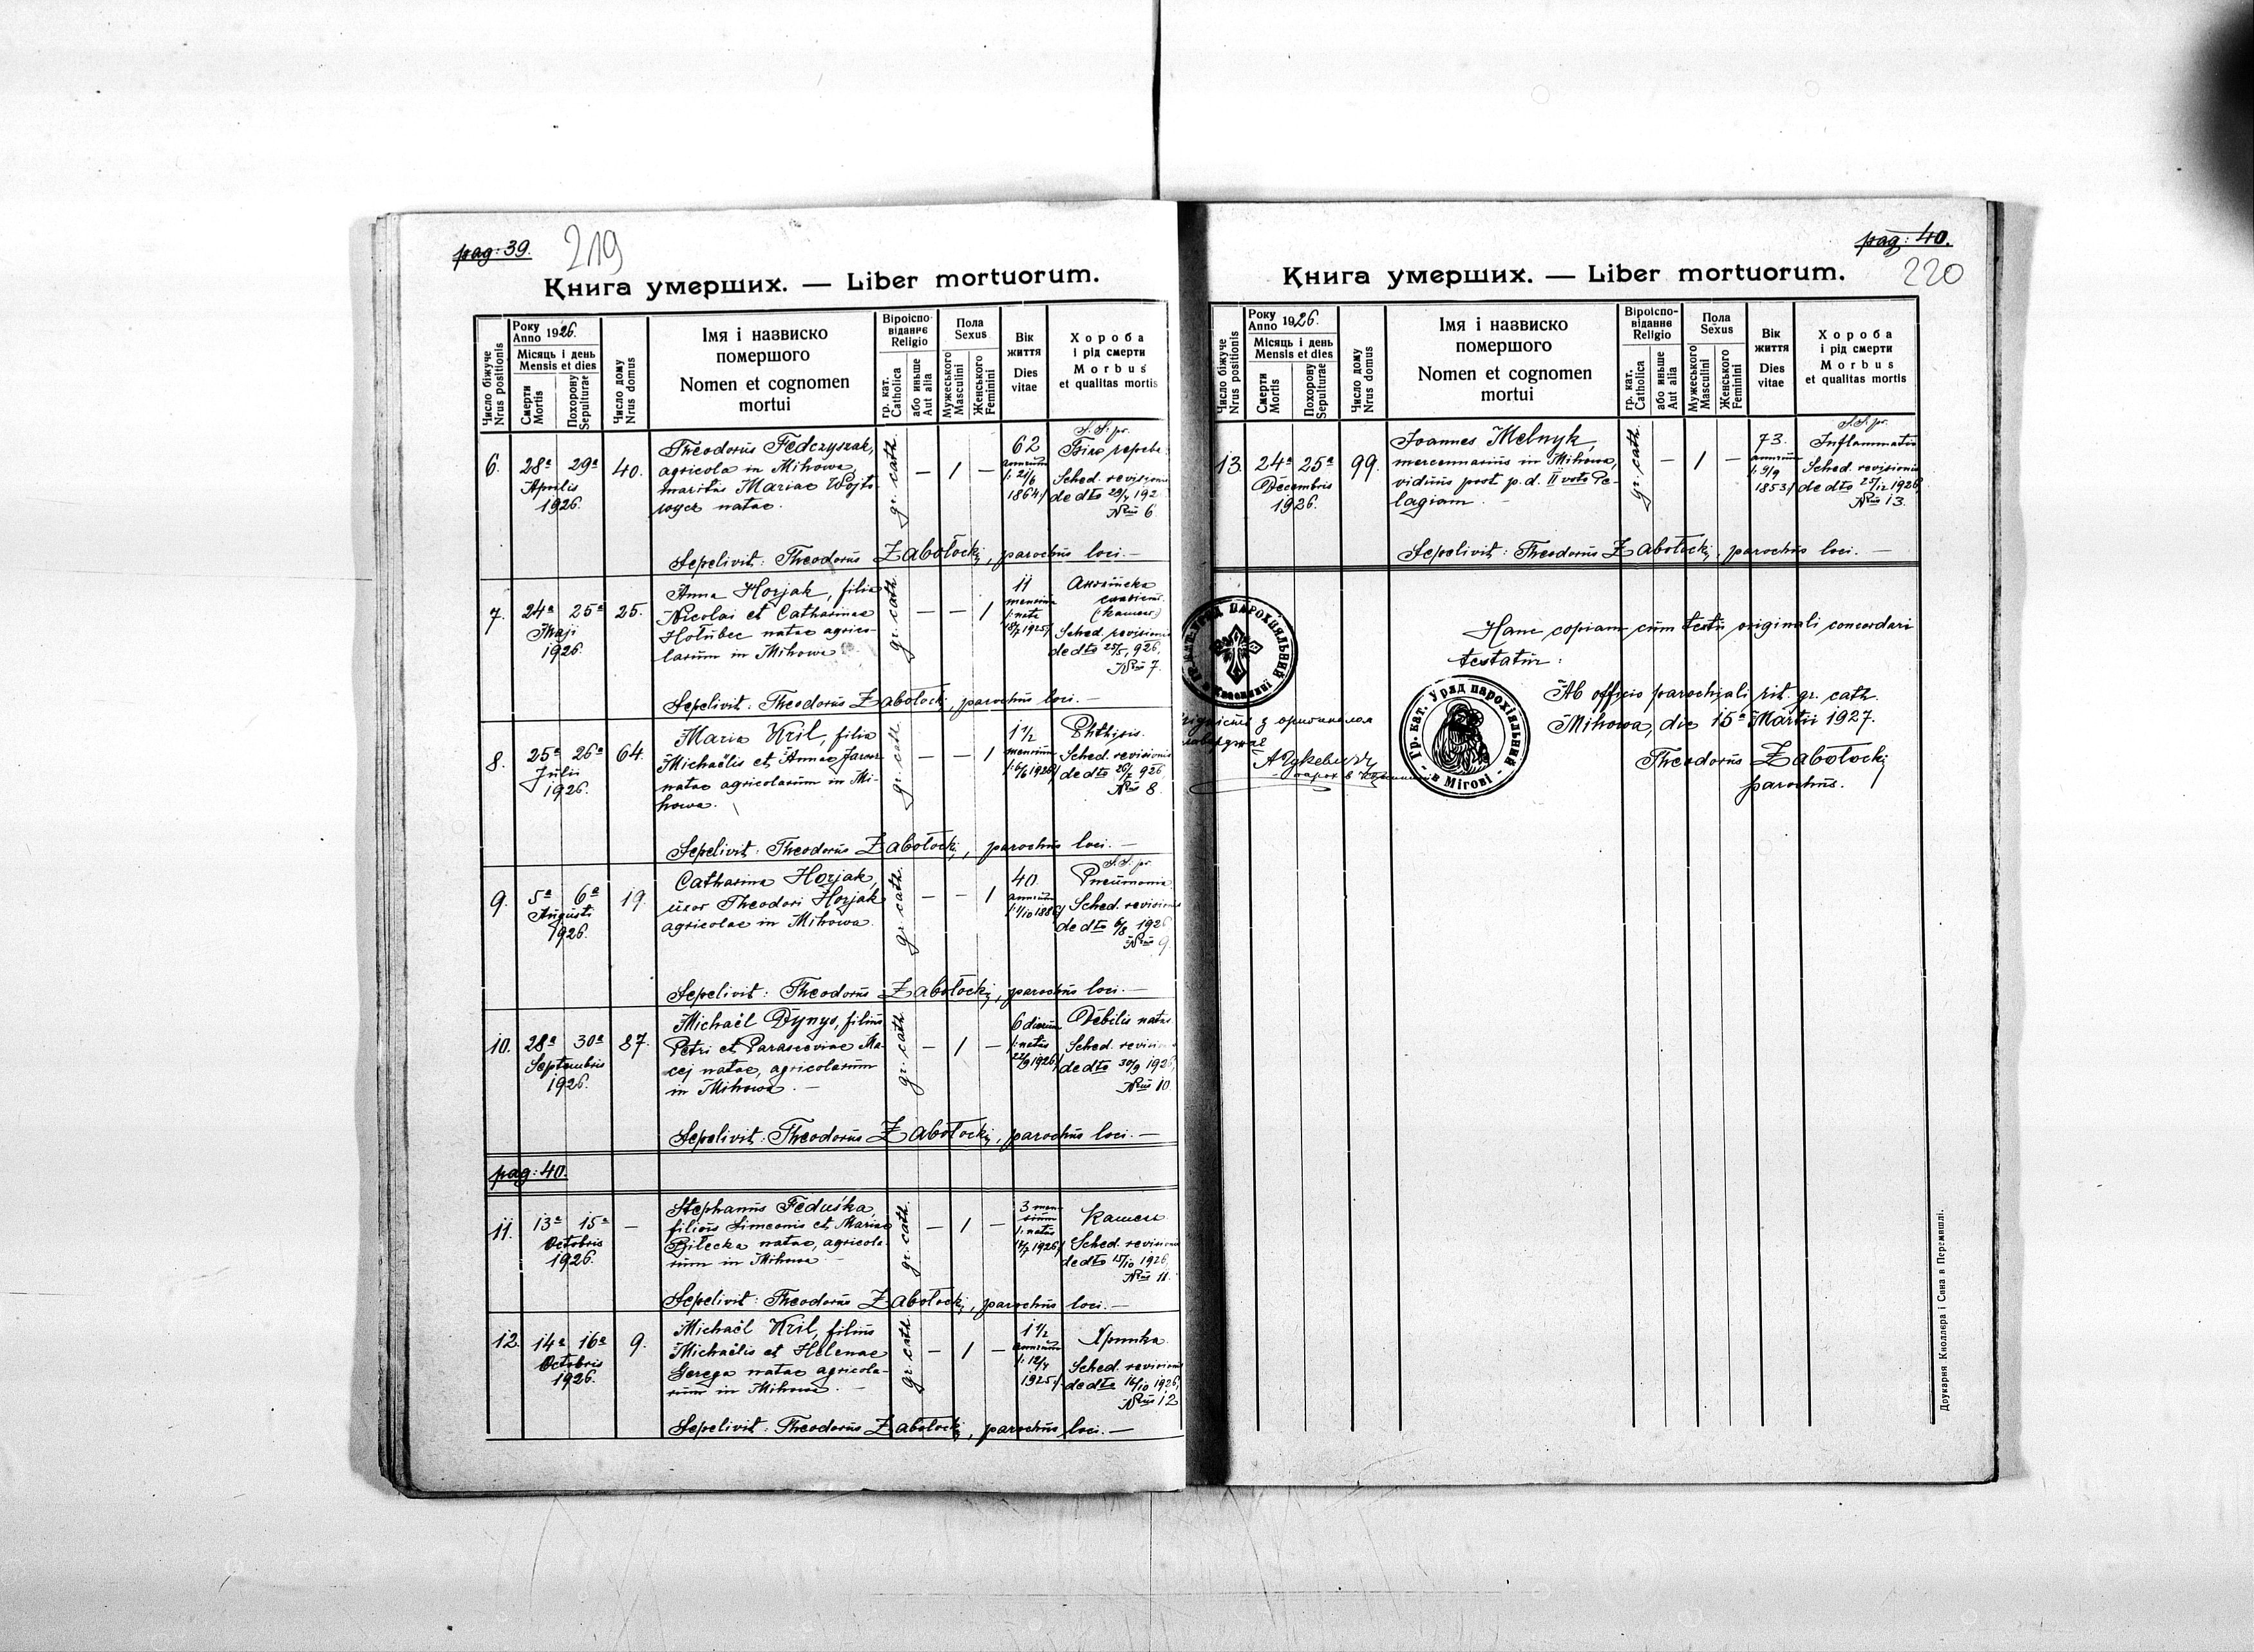 pag: 39.
219
Книга умерших. — Liber mortuorum.
Число біжуче
Nrus positionis
Року
Anno 1926.
Місяць і день
Mensis et dies
Смерти
Mortis
Похорону
Sepulturae
Число дому
Nrus domus
Імя і назвиско
помершого
Nomen et cognomen
mortui
Віроіспо-
віданнє
Religio
гр. кат.
Catholica
або иньше
Aut alia
Пола
Sexus
Мужеського
Masculini
Женського
Feminini
Вік
життя
Dies
vitae
Хороба
і рід смерти
Morbus
et qualitas mortis
6. 28a 29a 40.
Aprilis
1926.
Theodorus Fedczyszak,
agricola in Mihowa,
maritus Mariae Wojto-
wycz natae.
gr. cath. — 1 —
62
annorum
1864/
S. S. pr.
Sched. revisionis
de dto
Nrus 6
Sepelivit: Theodorus Zabołockij, parochus loci. —
7. 24a 25a 25.
Maji
1926.
Anna Horjak, filia
Nicolai et Catharinae
Hołubec natae agrico-
larum in Mihowa
gr. cath. — — 1
11
mensium
/: nata
18/7 1925/
(kaszel)
Sched. revisionis
de dto 25/5 926,
Nrus 7.
Sepelivit: Theodorus Zabołockij, parochus loci. —
8. 25a 26a 64.
Julii
1926.
Maria Kril, filia
Michaëlis et Annae Jawor
natae agricolarum in Mi-
howa.
gr. cath. — — 1
1 1/2
mensium
Phthisis.
Sched. revisionis
de dto 26/7 926,
Nrus 8.
Sepelivit: Theodorus Zabołockij, parochus loci. —
9. 5a 6a 19.
Augusti
1926.
Catharina Horjak,
uxor Theodori Horjak
agricolae in Mihowa.
gr. cath. — — 1
40.
annorum
S. S. pr.
Pneumonia.
Sched. revisionis
de dto 6/8 1926
Nrus 9
Sepelivit: Theodorus Zabołockij, parochus loci. —
10. 28a 30a 87.
Septembris
1926.
Michaël Dynys, filius
Petri et Parasceviae Ma-
cej natae, agricolarum
in Mihowa. —
gr. cath. — 1 —
6 dierum
/: natus
22/9 1926/
Debilis natus
Sched. revisionis
de dto 30/9 1926,
Nrus 10.
Sepelivit: Theodorus Zabołockij, parochus loci. —
pag: 40.
11. 13a 15a —
Octobris
1926.
Stephanus Feduśka,
filius Simeonis et Mariae
Biłecka natae, agricola-
rum in Mihowa. —
gr. cath. — 1 —
3 men-
sium
/: natus
1926/
Кашель.
Sched. revisionis
de dto 15/10 1926,
Nrus 11.
Sepelivit: Theodorus Zabołockij, parochus loci. —
12. 14a 16a 9.
Octobris
1926.
Michaël Kril, filius
Michaëlis et Helenae
Gerega natae agricola-
rum in Mihowa. —
gr. cath. — 1 —
1 1/2
annorum
1925/
Хрипка
Sched. revisionis
de dto 16/10 1926,
Nrus 12
Sepelivit: Theodorus Zabołockij, parochus loci. —
pag: 40.
220
Книга умерших. — Liber mortuorum.
Число біжуче
Nrus positionis
Року
Anno 1926.
Місяць і день
Mensis et dies
Смерти
Mortis
Похорону
Sepulturae
Число дому
Nrus domus
Імя і назвиско
помершого
Nomen et cognomen
mortui
Віроіспо-
віданнє
Religio
гр. кат.
Catholica
або иньше
Aut alia
Пола
Sexus
Мужеського
Masculini
Женського
Feminini
Вік
життя
Dies
vitae
Хороба
і рід смерти
Morbus
et qualitas mortis
13. 24a 25a 99.
Decembris
1926.
Joannes Melnyk,
mercennarius in Mihowa,
viduus post p. d. II voto Pe-
lagiam.
gr. cath. — 1 —
73.
annorum
/: 9/9
1853/
S. S. pr.
Inflammatio
Sched. revisionis
de dto 25/12 1926,
Nrus 13.
Sepelivit: Theodorus Zabołockij, parochus loci. —
Hanc copiam cum textu originali concordari
testatur:
Ab officio parochiali rit. gr. cath.
Mihowa, die 15a Martii 1927.
Theodorus Zabołockij
parochus.
Гр. кат. Уряд парохіяльний
в Мігові
з оригиналом
Друкарня Кноллера і Сина в Перемишлі.